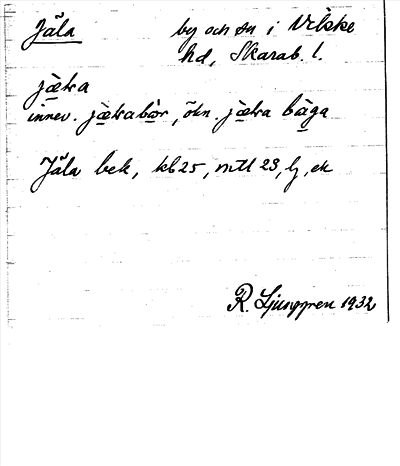 Jäla by och sn i Vilske
hd, Skarab. l.
jæ̀ra
innev. jæ̀rabor, ökn. jæ̀ra bàga
Jäla bek, kb 25, mtl 23, lj, ek
R. Ljunggren 1932